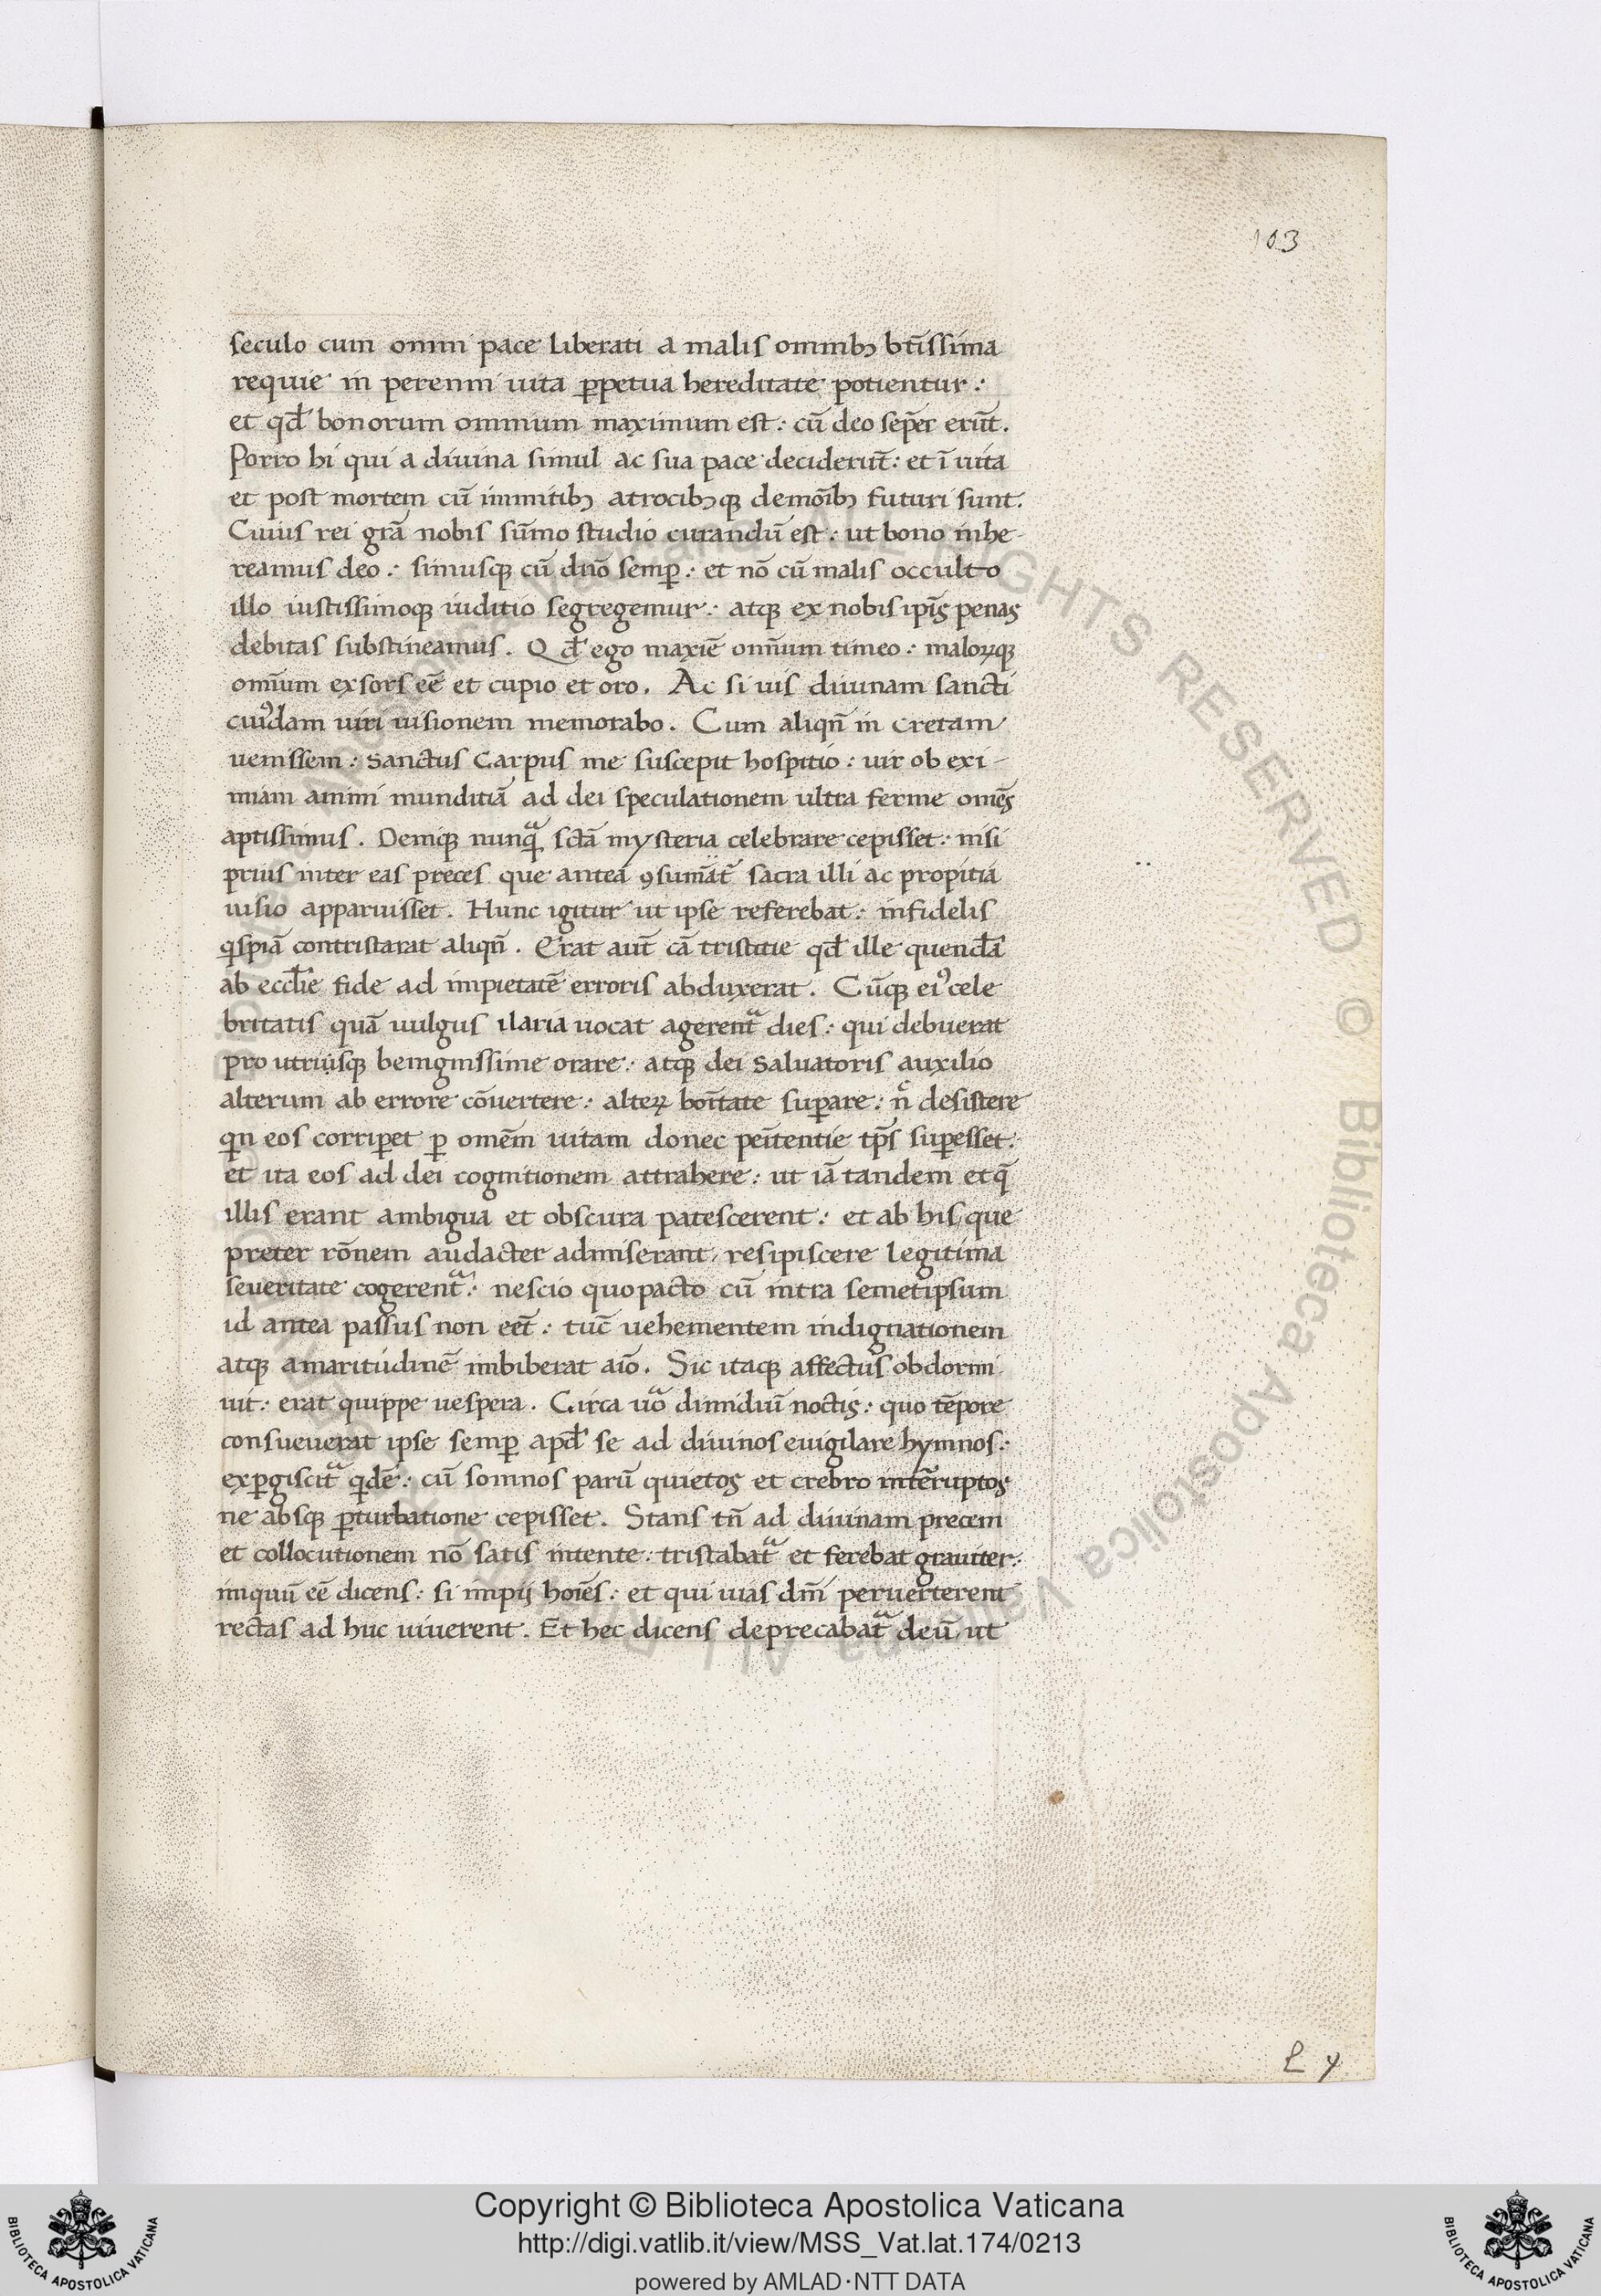 103
seculo cum omni pace liberati a malis omnibꝫ bti̅ssima
requie in perenni uita ꝑpetua hereditate potientur:
et qd̅ bonorum omnium maximum est: cu̅ deo sep̅er eru̅t.
Porro hi qui a diuina simul ac sua pace deciderut̅: et i̅ uita
et post mortem cu̅ immitibꝫ atrocibꝫqꝫ demo̅ibꝫ futuri sunt.
Cuius rei gra̅ nobis su̅mo studio curandu̅ est: ut bono inhe-
reamus deo: simusqꝫ cu̅ dn̅o semꝑ: et no̅ cu̅ malis occulto
illo iustissimoqꝫ iuditio segregemur: atqꝫ ex nobis ip̅is penas
debitas substineamus. Qd̅ ego maxie̅ omn̅ium timeo: maloꝝqꝫ
omi̅um exsors ee̅ et cupio et oro. Ac si uis diuinam sancti
cuiꝰdam uiri uisionem memorabo. Cum aliqn̅ in cretam
uenissem: sanctus Carpus me suscepit hospitio: uir ob exi-
miam animi munditia̅ ad dei speculationem ultra ferme ome̅s
aptissimus. Deniqꝫ nunqᷓ scta̅ mysteria celebrare cepisset: nisi
prius inter eas preces que antea ꝯsuma̅t̅ sacra illi ac propitia
uisio apparuisset. Hunc igitur ut ipse referebat: infidelis
qͥspia̅ contristarat aliqn̅. Erat aut̅ ca̅ tristitie qd̅ ille quenda̅
ab eccl̅ie fide ad impietate̅ erroris abduxerat. Cu̅qꝫ eiꝰ cele
britatis qua̅ uulgus ilaria uocat agerentᷓ dies: qui debuerat
pro utriusqꝫ benignissime orare: atqꝫ dei saluatoris auxilio
alterum ab errore co̅uertere: alteꝝ boi̅tate suꝑare: nͨ desistere
qͥn eos corriꝑet ꝑ ome̅m uitam donec pei̅tentie tp̅s suꝑesset:
et ita eos ad dei cognitionem attrahere: ut ia̅ tandem et q̅
illis erant ambigua et obscura patescerent: et ab his que
preter ro̅nem audacter admiserant, resipiscere legitima
seueritate cogerentᷓ: nescio quo pacto cu̅ intra semetipsum
id antea passus non eet̅: tuc̅ uehementem indignationem
atqꝫ amaritudine̅ imbiberat aio̅. Sic itaqꝫ affectus obdormi
uit: erat quippe uespera. Circa uᷓo dimidiu̅ noctis: quo te̅pore
consueuerat ipse semꝑ apd̅ se ad diuinos euigilare hymnos:
exꝑgiscitᷓ qͥde̅: cu̅ somnos paru̅ quietos et crebro inte̅ruptos
ne absqꝫ ꝑturbatione cepisset. Stans tn̅ ad diuinam precem
et collocutionem no̅ satis intente: tristabatᷓ et ferebat grauiter:
iniquu̅ ee̅ dicens: si impij hoi̅es: et qui uias dn̅i peruerterent
rectas ad huc uiuerent. Et hec dicens deprecabatᷓ deu̅ ut
© Biblioteca Apostolica Vaticana ALL RIGHTS RESERVED © Biblioteca Apostolica Vaticana ALL RIGHTS RESERVED
Copyright © Biblioteca Apostolica Vaticana
http://digi.vatlib.it/view/MSS_Vat.lat.174/0213
powered by AMLAD·NTT DATA
BIBLIOTECA APOSTOLICA VATICANA
BIBLIOTECA APOSTOLICA VATICANA